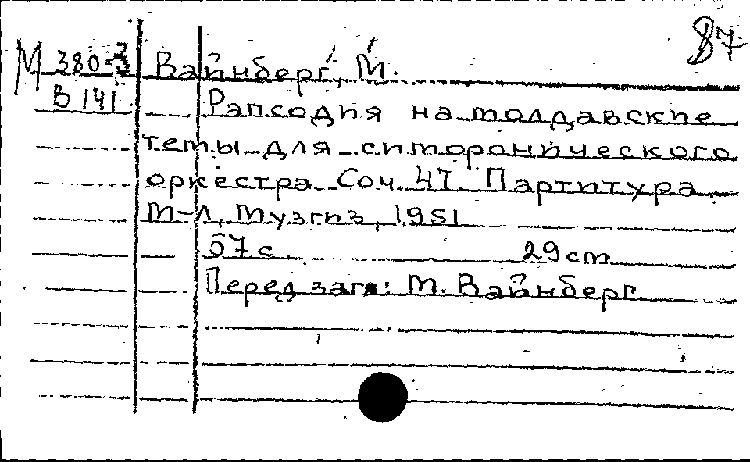 87
М 380-3 Вайнберг, М.
В 141 Рапсодия на молдавские
темы для симфонического
оркестра. Соч. 47. Партитура.
М-Л, Музгиз, 1951
57 с. 29 cm
Перед загл: М. Вайнберг